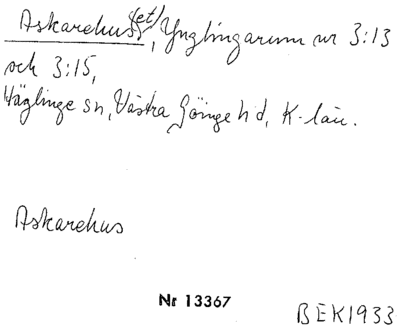 Askarehus(et), Ynglingarum nr 3:13
och 3:15,
Häglinge sn, Västra Göinge hd, K-län.
Askarehus
Nr 13367
BEK1933